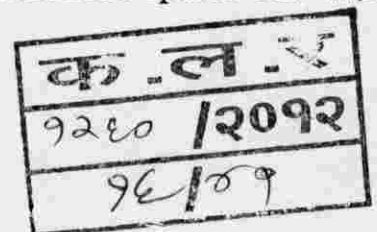 क.ल.
१२६० /२०१२
१६/४१